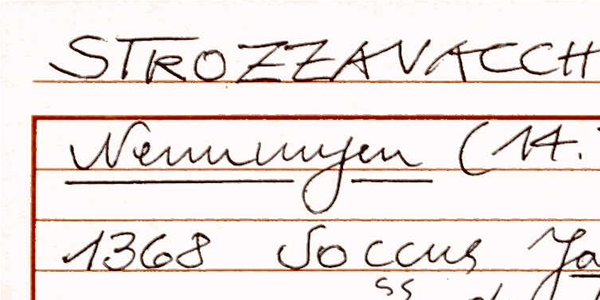 STROZZAVACCH
Nennungen (14.
1368 Soccus Ja
ss